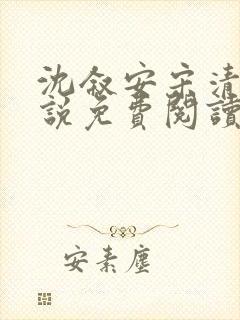 沈叙安宋清
說免費閱讀
安素塵